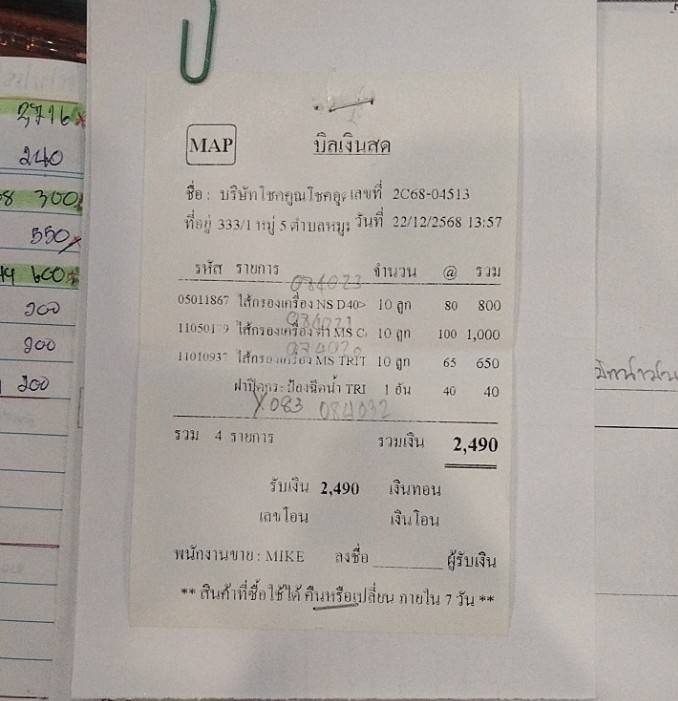 2716x
240
8 300
550x
44 600x
200
200
200
MAP
บิลเงินสด
ชื่อ : บริษัท เลขที่ 2C68-04513
ที่อยู่ 333/1 หมู่ 5 ตำบลหมู วันที่ 22/12/2568 13:57
รหัส รายการ จำนวน @ รวม
084023
05011867 ไส้กรองเครื่อง NS D40> 10 ลูก 80 800
ไส้กรองเครื่อง 10 ลูก 100 1,000
ไส้กรองเครื่อง MS TRIT 10 ลูก 65 650
ฝาปิดกระป๋องฉีดน้ำ TRI 1 อัน 40 40
X083 084032
รวม 4 รายการ รวมเงิน 2,490
รับเงิน 2,490 เงินทอน
เลขโอน เงินโอน
พนักงานขาย : MIKE ลงชื่อ ผู้รับเงิน
** สินค้าที่ซื้อไปใช้ได้ คืนหรือเปลี่ยน ภายใน 7 วัน **